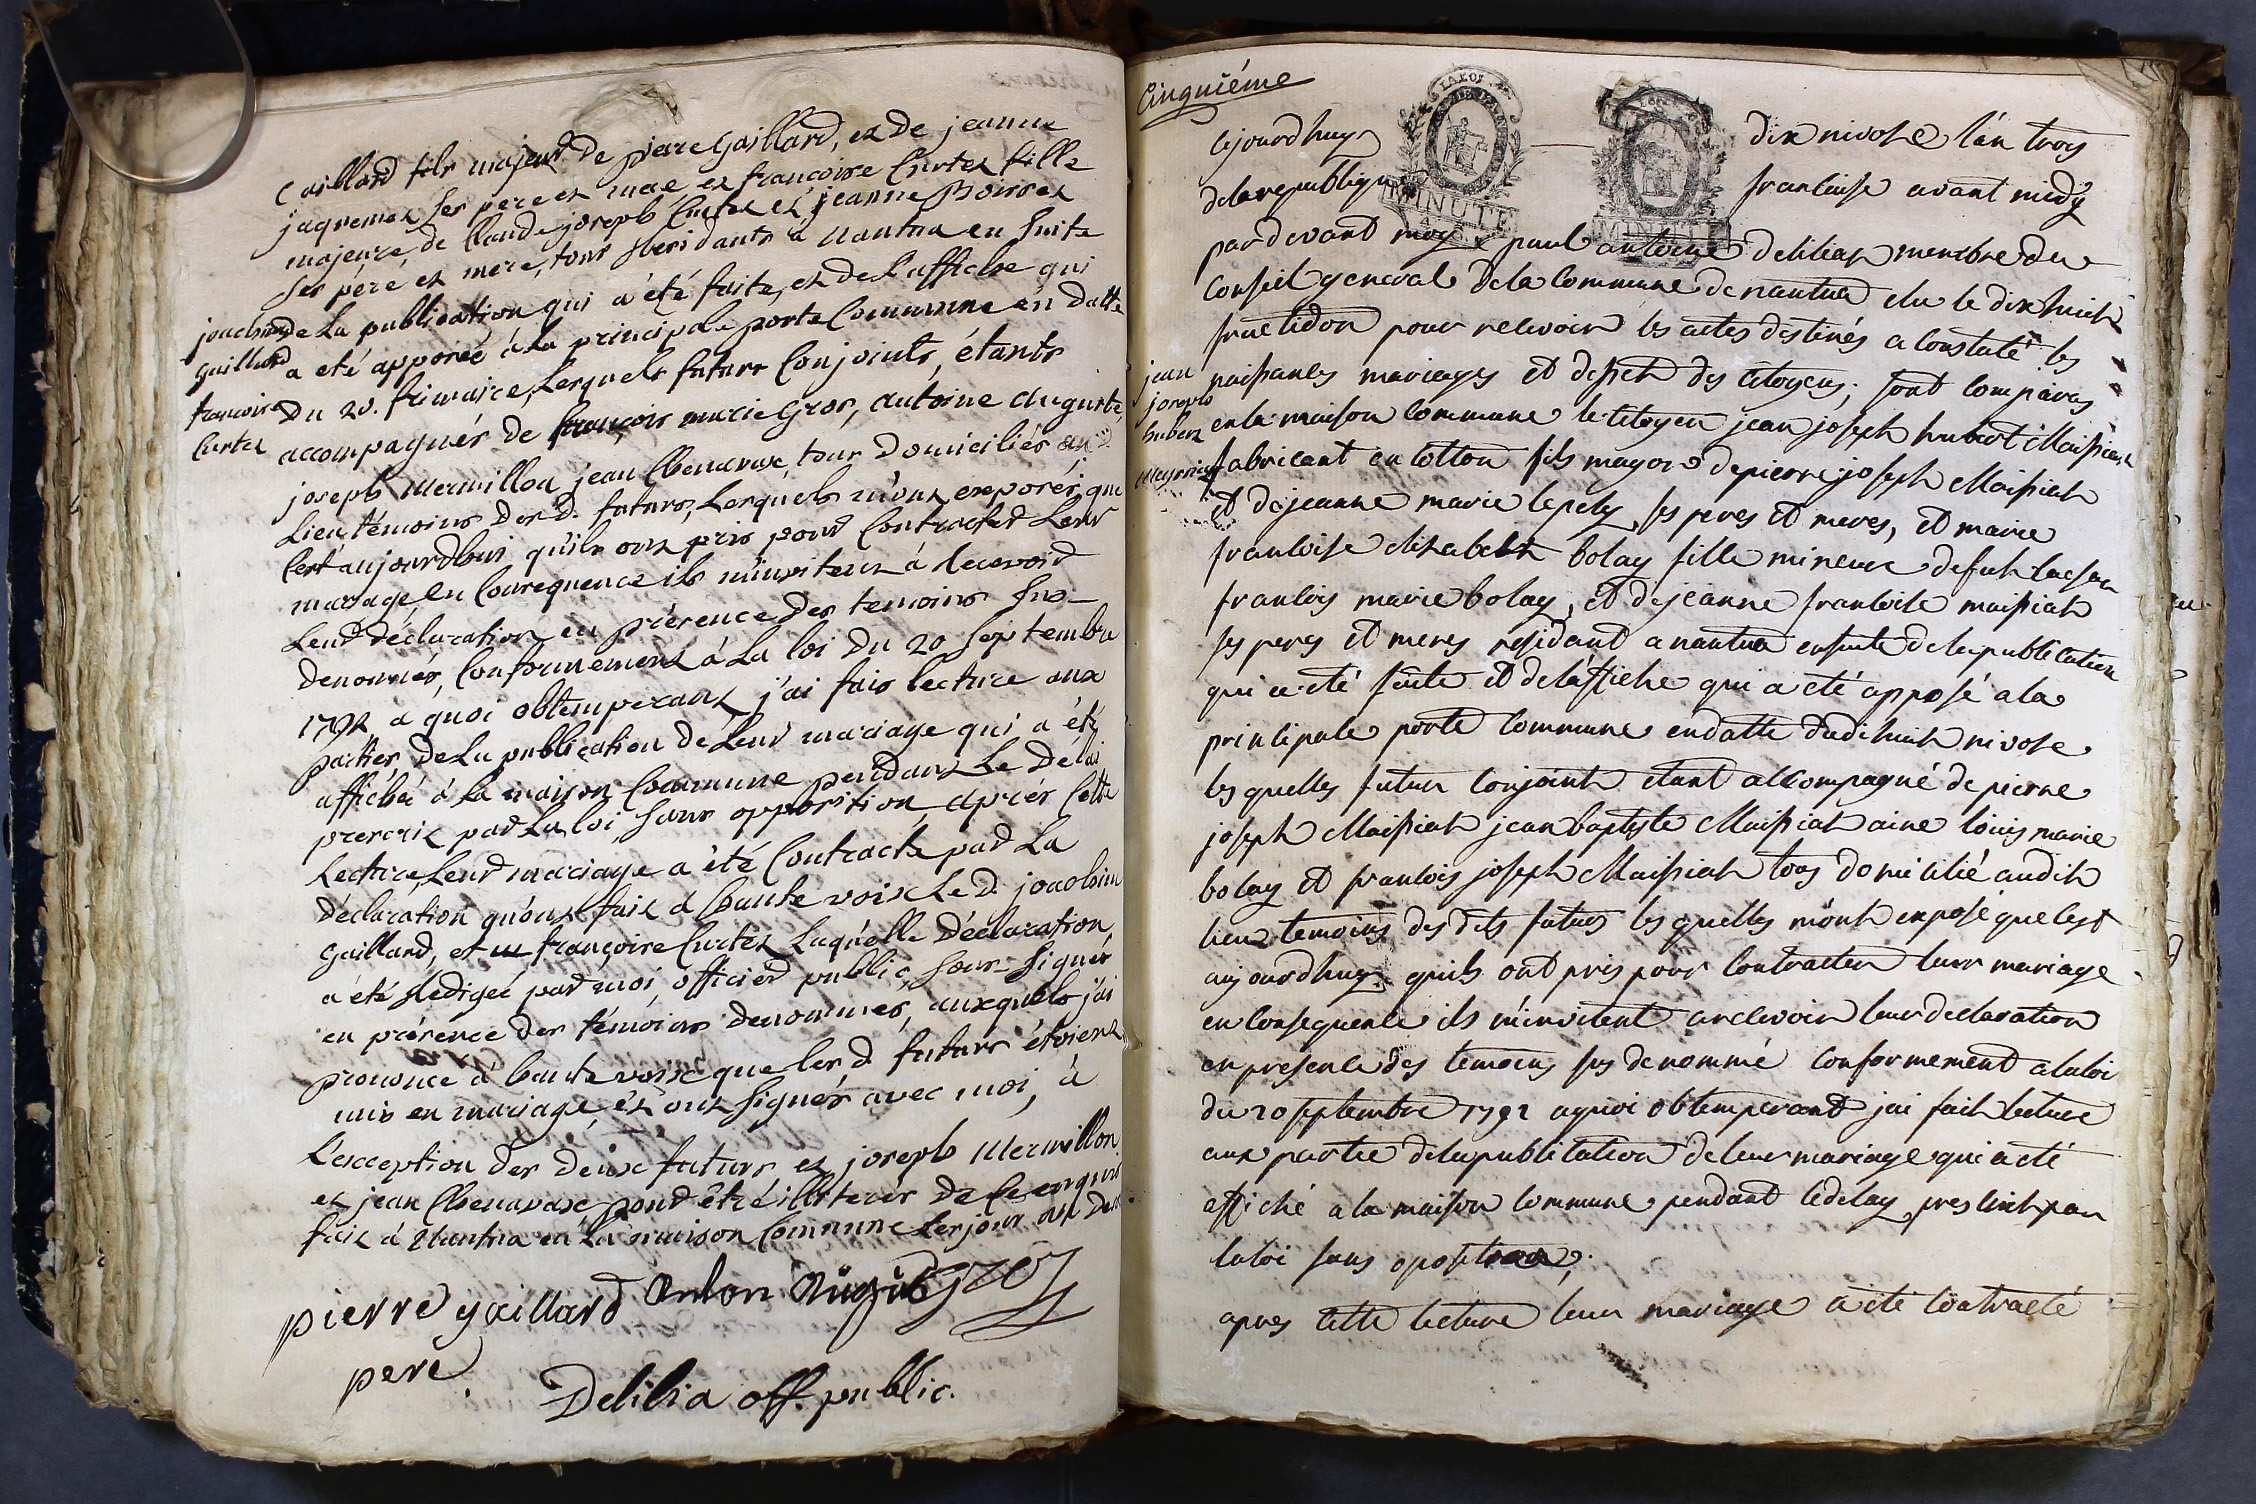 Gaillard fils majeur de pierre Gaillard, et de jeanne
jaquemet ses pere et mere et francoise Curtet fille
majeure, de Claude joseph Curtet et jeanne Boisset
ses pére et mere, tous residants a Nantua en suite
de La publication qui a été faite, et de L'affiche qui
a eté apposée à la principale porte Commune en datte
Du 20. frimaire, Lesquels futurs Conjoints, étants
accompagnés de françois marie Gros, Antoine Auguste,
joseph Mermillon jean Chenavaxe, tous Domiciliés au d.
Lieu, témoins des d. futurs, Lesquels m'ont exposés que
C'est aujourdhui qu'ils ont pris pour Contracter Leur
mariage, en Consequence ils m'invitent à recevoir
Leur déclaration en présence des temoins sus-
denommés, Conformement à La loi Du 20 septembre
1792 a quoi obtemperant j'ai fais lecture aux
parties, de La publication de Leur mariage qui a été
affichée à La maison Commune pendant Le délai
prescrit par La loi sans opposition, après Cette
Lecture, Leur mariage a été Contracté par La
déclaration qu'ont fait à haute voix Le d. joachim
Gaillard, et françoise Curtet Laquelle déclaration
a été redigée par moi officier public, sous-signés
en présence des témoins denommés, auxquels j'ai
prononcé à haute voix que les d. futurs étoient
unis en mariage, et ont signés avec moi, à
L'exception des deux futurs et joseph Mermillon
et jean Chenavaxe pour être illiterés de ce enquis
fait à Nantua en La maison Commune les jour an
joachim
Gaillard
francoise
Curtet
pierre gaillard
pere
Delilia off. public.
Cinquiéme
Cejourd huy dix nivose l'an trois
de la republique francaise avant midy
pardevant moy paul antoine delilia membre du
Conseil general de la Commune de nantua elu le dix huit
fructidor pour recevoir les actes destinés a constaté les
naissances mariages et deses des citoyens, sont comparus
en la maison commune le citoyen jean joseph hubert Maissiat
fabricant en cotton fils mayor de pierre joseph Maissiat
et de jeanne marie lepely, ses peres et meres, et marie
francoise elisabeth bolay fille mineure de fut
francois marie bolay, et de jeanne francoise maissiat
ses peres et meres residant a nantua ensuite de la publication
qui a eté faite et de l'affiche qui a eté apposé a la
principale porte commune en datte du dihuit nivose
les quelles futur conjoint etant accompagné de pierre
joseph Maissiat jean baptiste Maissiat ainé louis marie
bolay et francois joseph Maissiat tous domicilié audit
lieu temoins des dits futurs les quelles m'ont exposé que cest
aujourdhuy quils ont pris pour contracter leur mariage
en consequence ils m'invitent a recevoir leur declaration
en presence des temoins sus denommé conformement a la loi
du 20 septembre 1792 a quoi obtemperant jai fait lecture
aux partie de la publication de leur mariage qui a eté
affiché a la maison commune pendant le delay prescrit par
la loi sans oposition,
apres cette lecture leur mariage a eté contracté
jean
joseph
hubert
MINUTE
MINUTE